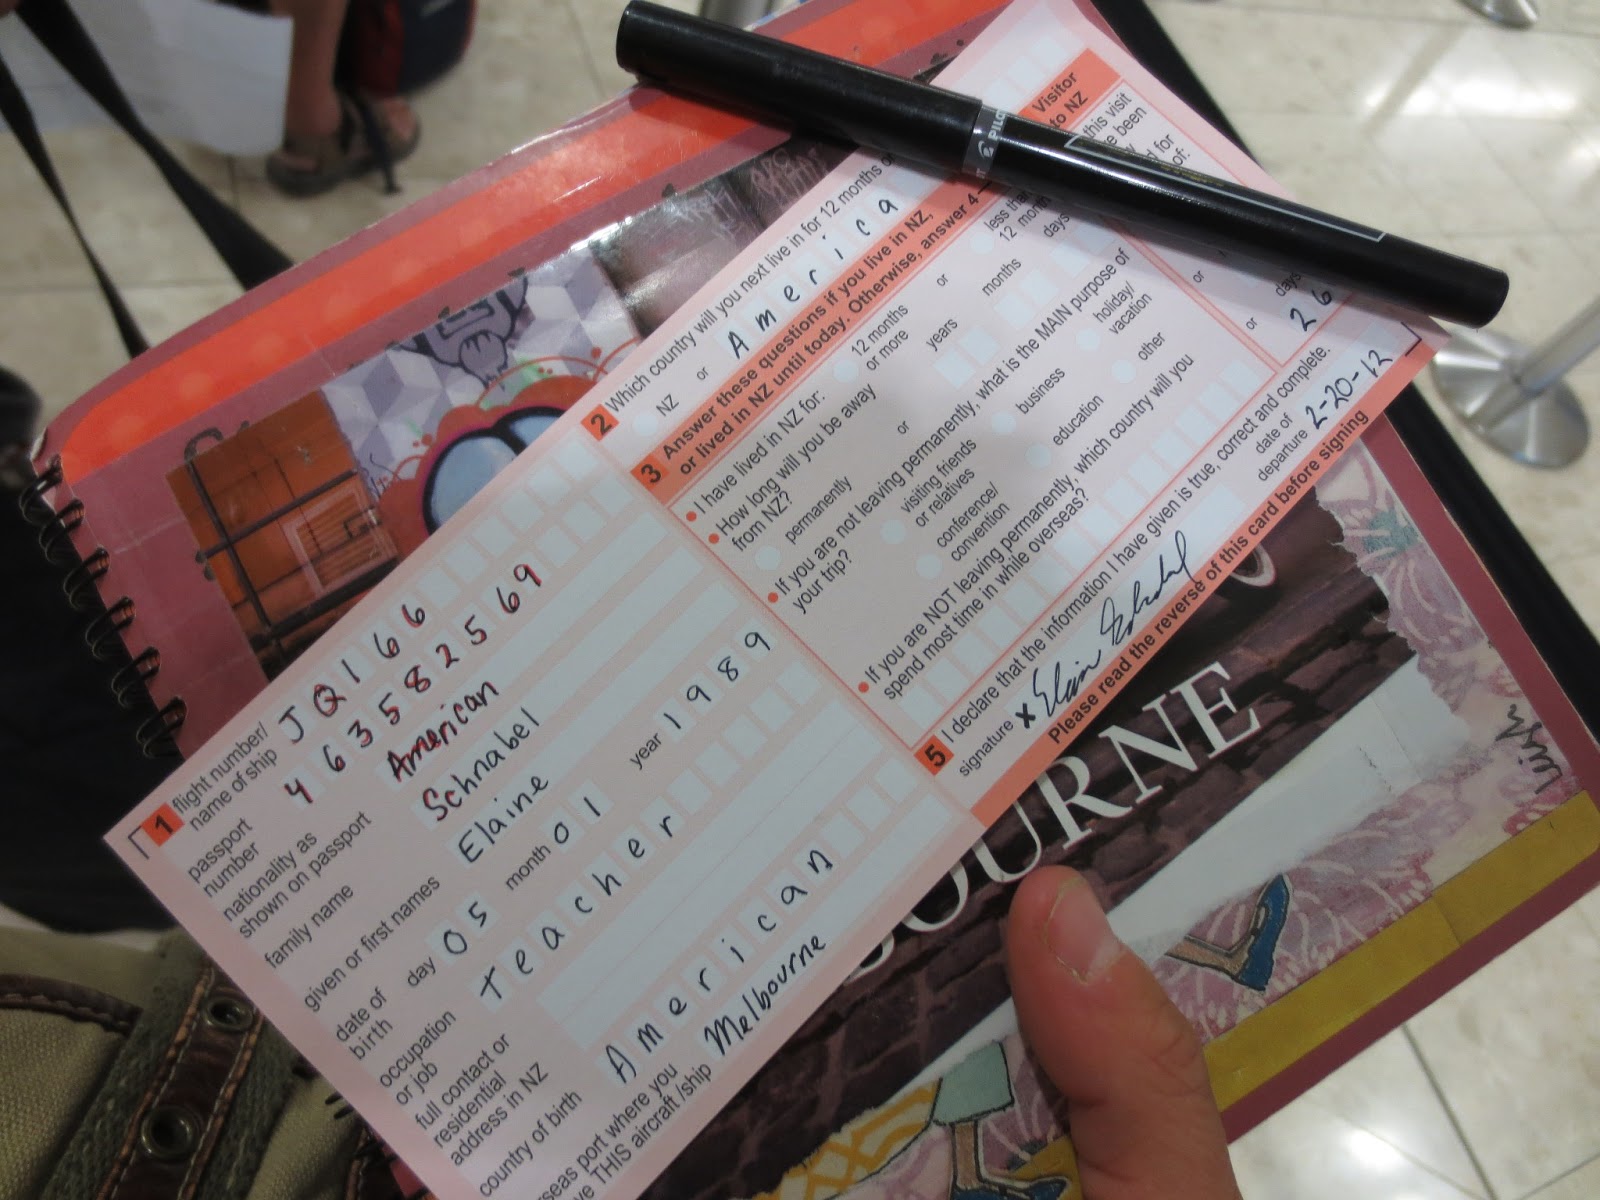 1 flight number/
name of ship J Q 1 6 6
passport
number 4 6 3 5 8 2 5 6 9
nationality as
shown on passport American
family name Schnabel
given or first names Elaine
date of
birth day 0 5 month 0 1 year 1 9 8 9
occupation
or job Teacher
full contact or
residential
address in NZ
country of birth American
port where you
THIS aircraft/ship Melbourne
2 Which country will you next live in for 12 months
NZ or America
3 Answer these questions if you live in NZ,
or lived in NZ until today. Otherwise, answer 4
• I have lived in NZ for: 12 months
or more or less than
12 months
• How long will you be away
from NZ? years months days
permanently or
• If you are not leaving permanently, what is the MAIN purpose of
your trip? visiting friends
or relatives business holiday/
vacation
conference/
convention education other
• If you are NOT leaving permanently, which country will you
spend most time in while overseas?
Visitor
to NZ
this visit
been
for
of:
or
or days
2 6
5 I declare that the information I have given is true, correct and complete.
signature x date of
departure 2-20-12
Please read the reverse of this card before signing
PILOT
OURNE